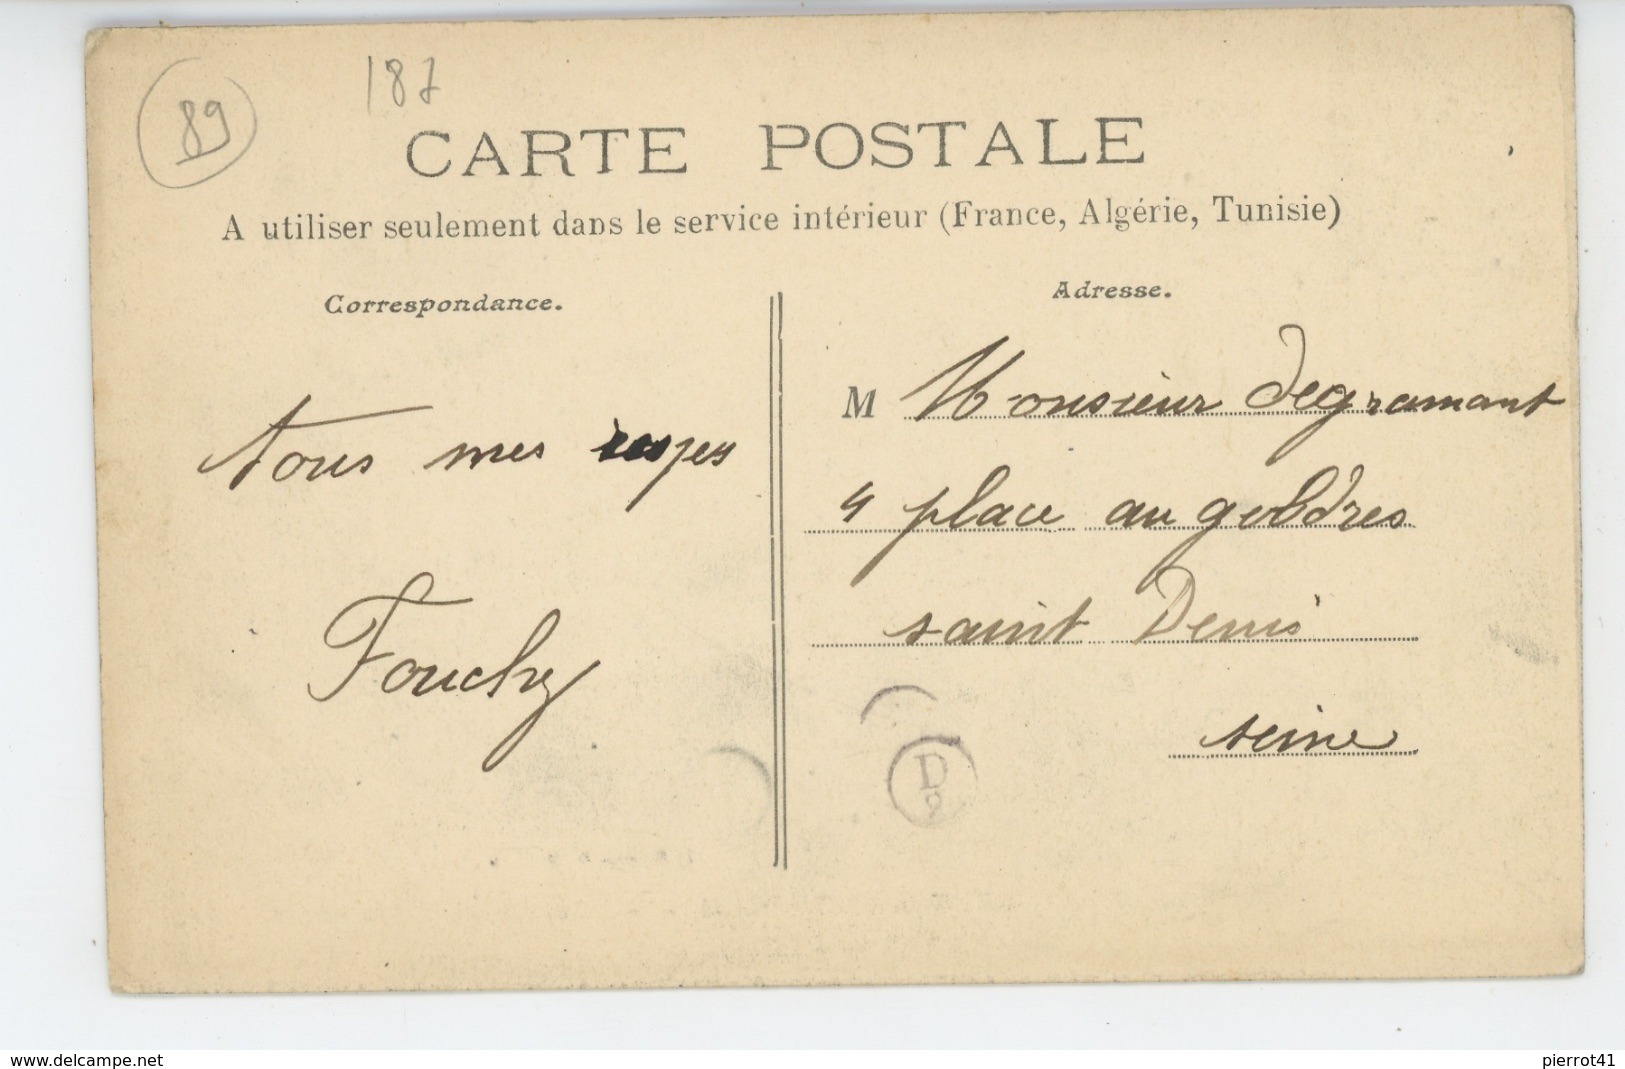 89
187
CARTE POSTALE
A utiliser seulement dans le service intérieur (France, Algérie, Tunisie)
Correspondance.
Adresse.
tous mes
Fouchy
M Monsieur degramant
4 place au gueldres
saint Denis
seine
D
2
www.delcampe.net
pierrot41